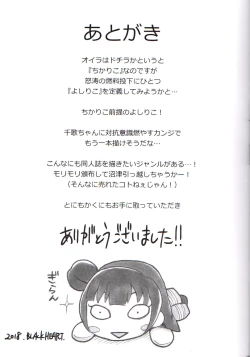 あとがき
オイラはドチラかというと
『ちかりこ』なのですが
怒涛の燃料投下にひとつ
『よしりこ』を定義してみようかと…
ちかりこ前提のよしりこ！
千歌ちゃんに対抗意識燃やすカンジで
もう一本描けそうだな…
こんなにも同人誌を描きたいジャンルがある…！
モリモリ頒布して沼津引っ越しちゃうかー！
（そんなに売れたコトねぇじゃん！）
とにもかくにもお手に取っていただき
ありがとうございました!!
ぎらん
2018. BLACKHEART.